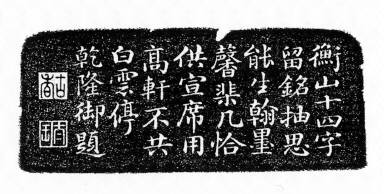 衡山十四字
留銘抽思
能生翰墨
馨棐几恰
供宣席用
高軒不共
白雲停
乾隆御題